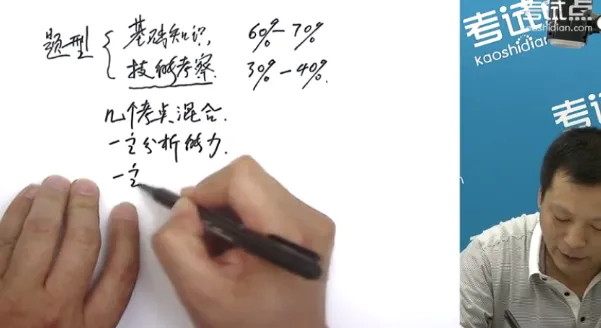 题型 { 基础知识, 60%-70%
技能考察. 30%-40%.
几个考点混合.
一定分析能力.
一定
考试点
kaoshidian.com
考试点
kaoshidian.com